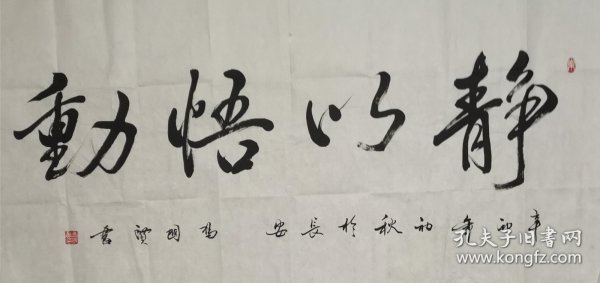 静以悟動
辛酉年初秋於長安 書
孔夫子旧书网
www.kongfz.com